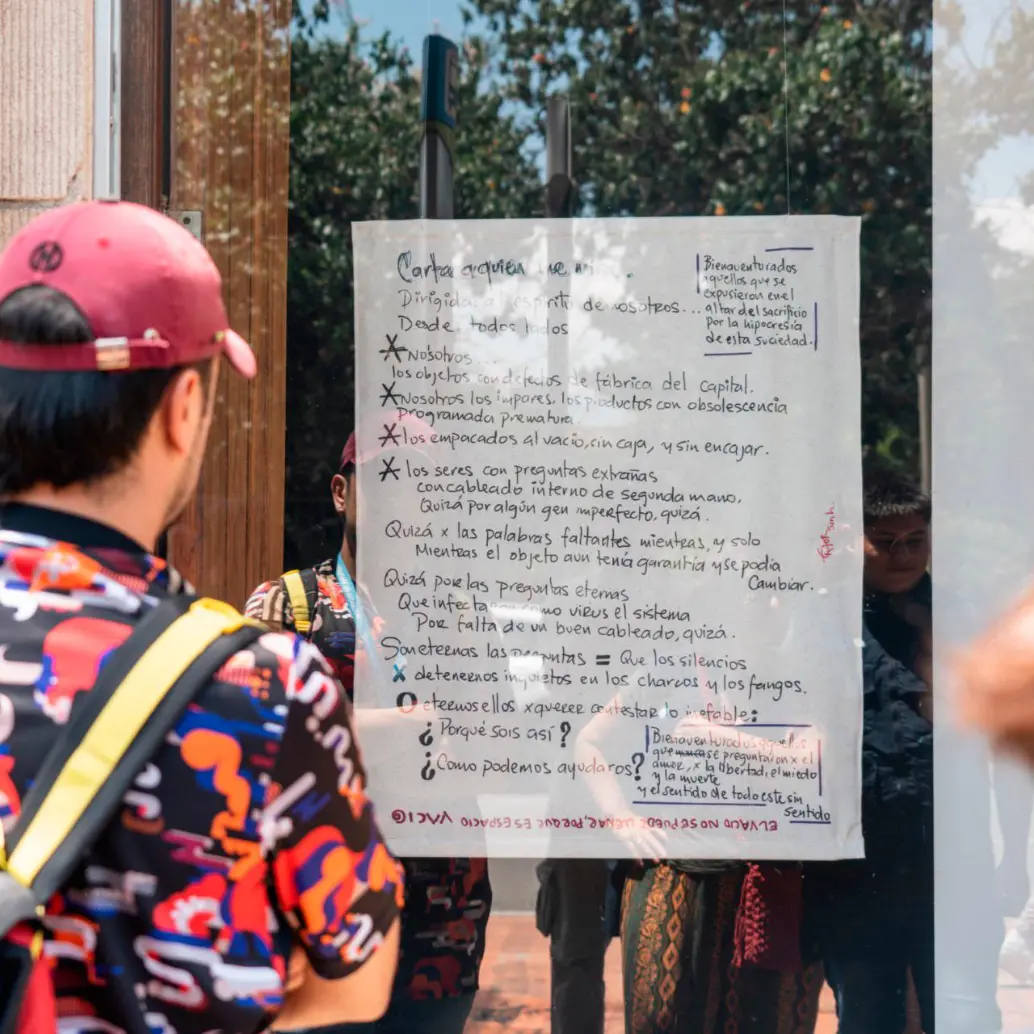 Carta a quien me mira.
Dirigida a espíritu de nosotros...
Desde todos lados
Bienaventurados
aquellos que se
expusieron en el
altar del sacrificio
por la hipocresía
de esta suciedad.
* Nosotros...
los objetos con defectos de fábrica del capital.
* Nosotros los impares, los productos con obsolescencia
Programada prematura.
* los empacados al vacio, sin caja, y sin encajar.
* los seres con preguntas extrañas
con cableado interno de segunda mano,
Quizá por algún gen imperfecto, quizá.
Quizá x las palabras faltantes mientras, y solo
Mientras el objeto aun tenía garantía y se podía
Cambiar.
Quizá por las preguntas eternas
Que infectaron como virus el sistema
Por falta de un buen cableado, quizá.
Son eternas las preguntas = Que los silencios
x detenernos inquietos en los charcos y los fangos.
O eternos ellos x querer contestar lo inefable:
¿Porqué sois así?
¿Como podemos ayudaros?
Bienaventurados aquellos
que se preguntaron x el
amor, x la libertad, el miedo
y la muerte
y el sentido de todo este sin
sentido
EL VACIO NO SE PUEDE LLENAR, PORQUE ES ESPACIO VACIO